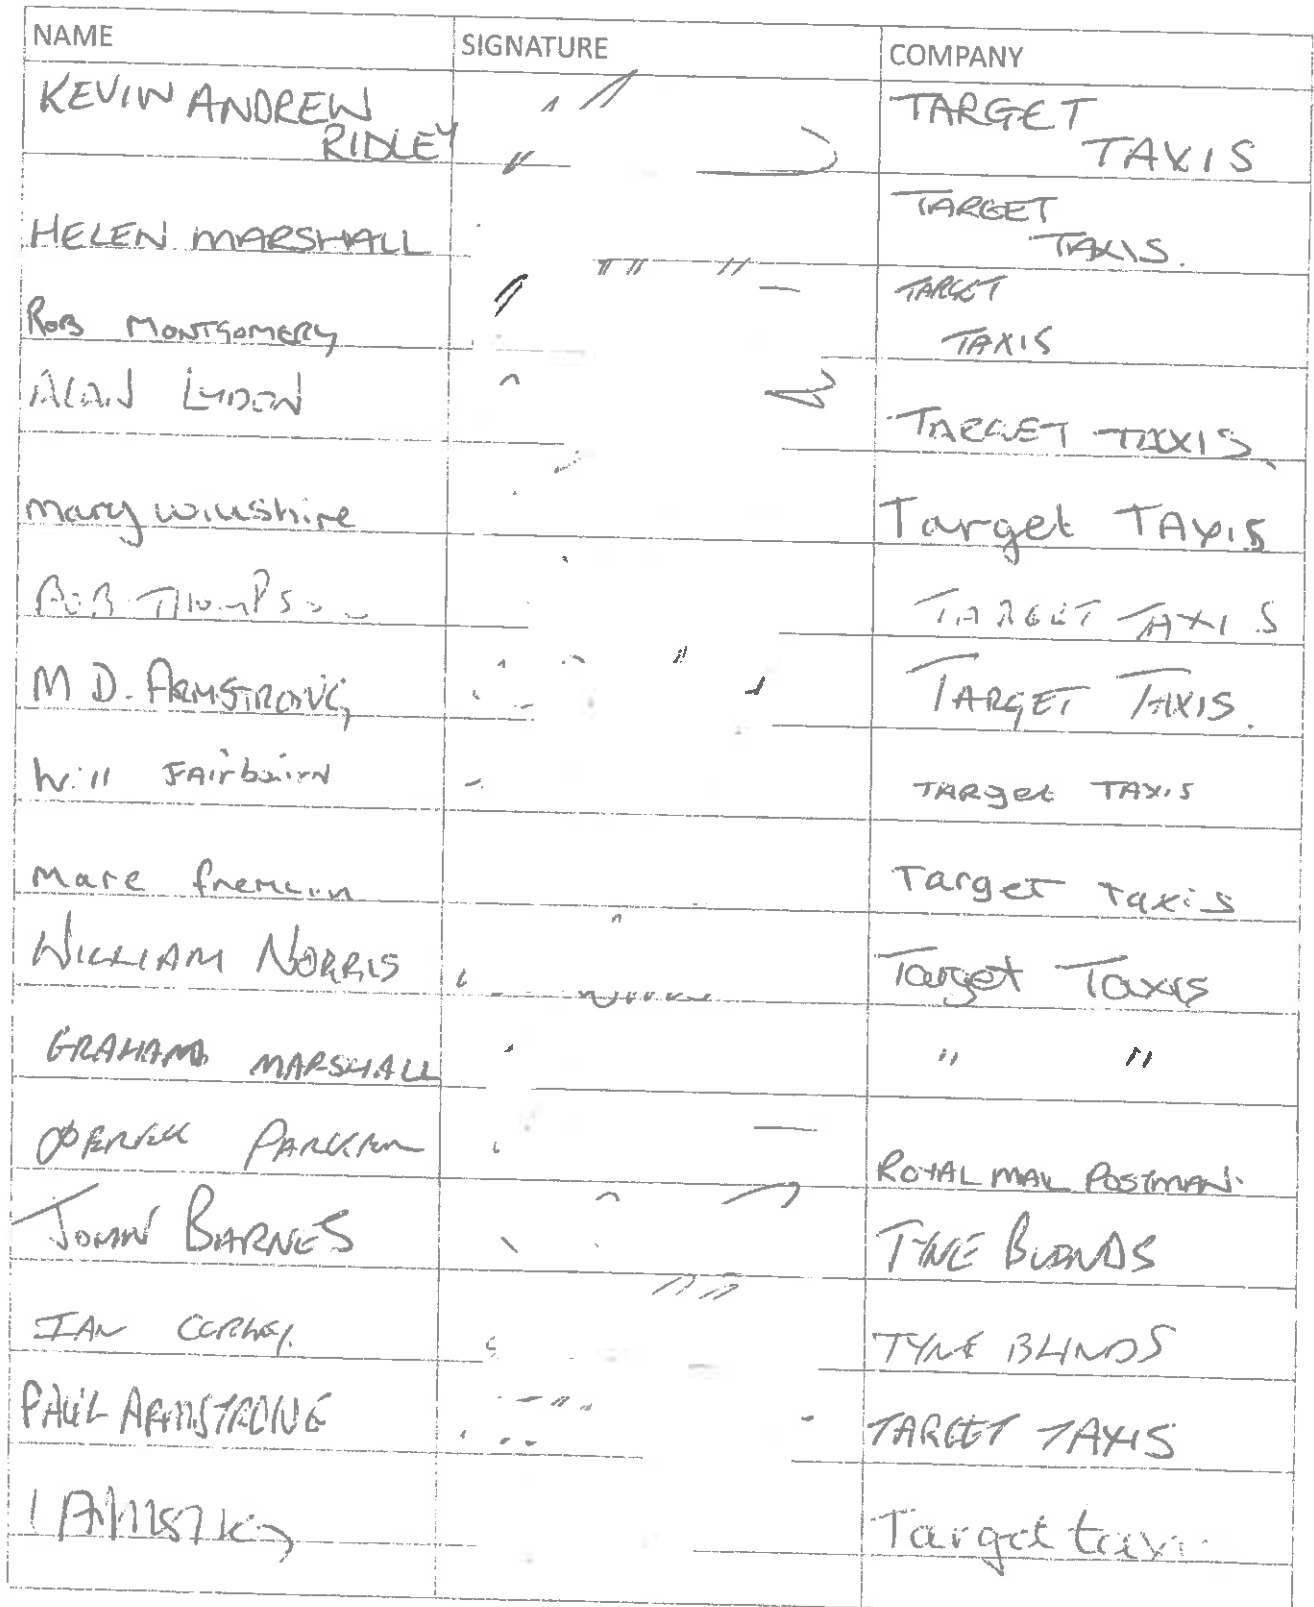 NAME SIGNATURE COMPANY
KEVIN ANDREW
RIDLEY
TARGET
TAXIS
HELEN MARSHALL
TARGET
TAXIS.
ROB MONTGOMERY
TARGET
TAXIS
ALAN LYDON TARGET TAXIS
Mary Willshire Target TAXIS
BOB THOMPSON TARGET TAXIS
M D. ARMSTRONG TARGET TAXIS.
Will FAIrbairn TARget TAXIS
Marc Target Taxis
WILLIAM NORRIS Target Taxis
GRAHAM MARSHALL " "
DEREK PARKER ROYAL MAIL POSTMAN.
JOHN BARNES TYNE BLINDS
IAN TYNE BLINDS
PAUL ARMSTRONG TARGET TAXIS
Target